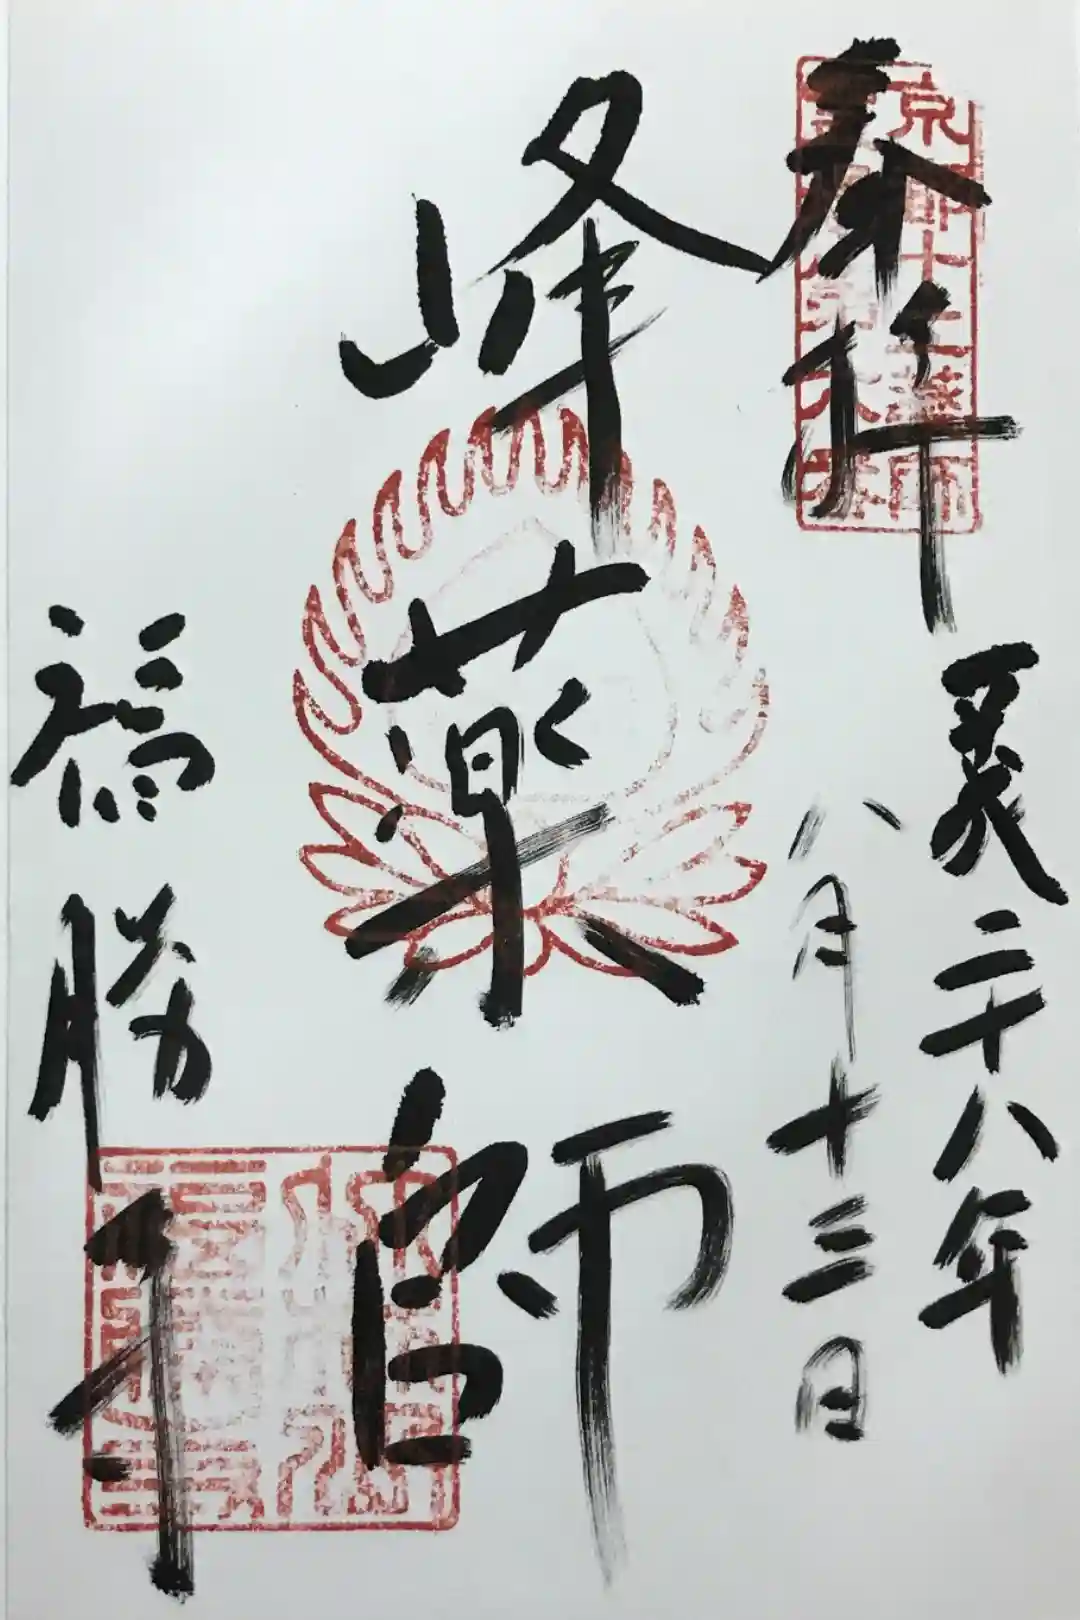 京都十二薬師
奉拝
平成二十八年
八月十三日
峰薬師
福勝寺